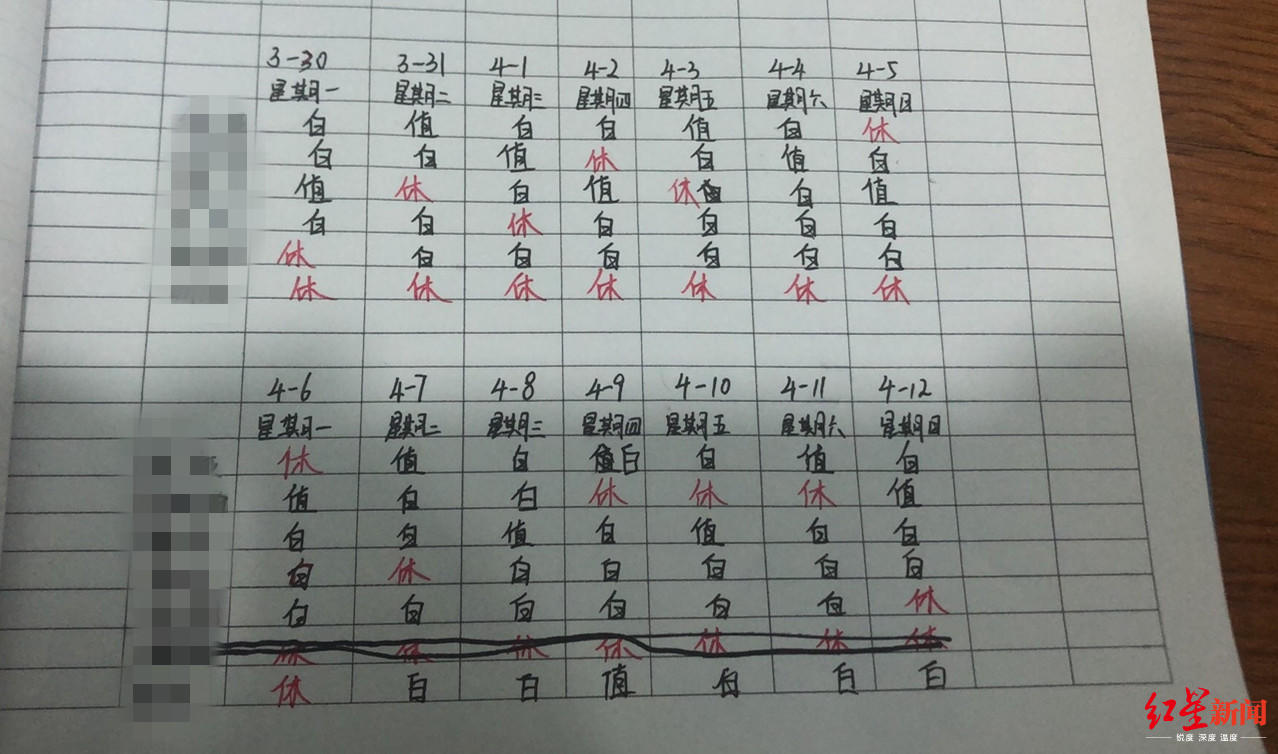 3-30 3-31 4-1 4-2 4-3 4-4 4-5
星期一 星期二 星期三 星期四 星期五 星期六 星期日
白 值 白 白 值 白 休
白 白 值 休 白 值 白
值 休 白 值 休 白 值
白 白 休 白 白 白 白
休 白 白 白 白 白 白
休 休 休 休 休 休 休
4-6 4-7 4-8 4-9 4-10 4-11 4-12
星期一 星期二 星期三 星期四 星期五 星期六 星期日
休 值 白 值白 白 值 白
值 白 白 休 休 休 值
白 白 值 白 值 白 白
白 休 白 白 白 白 白
白 白 白 白 白 白 休
休 休 休 休 休 休 休
休 白 白 值 白 白 白
红星新闻
锐度 深度 温度